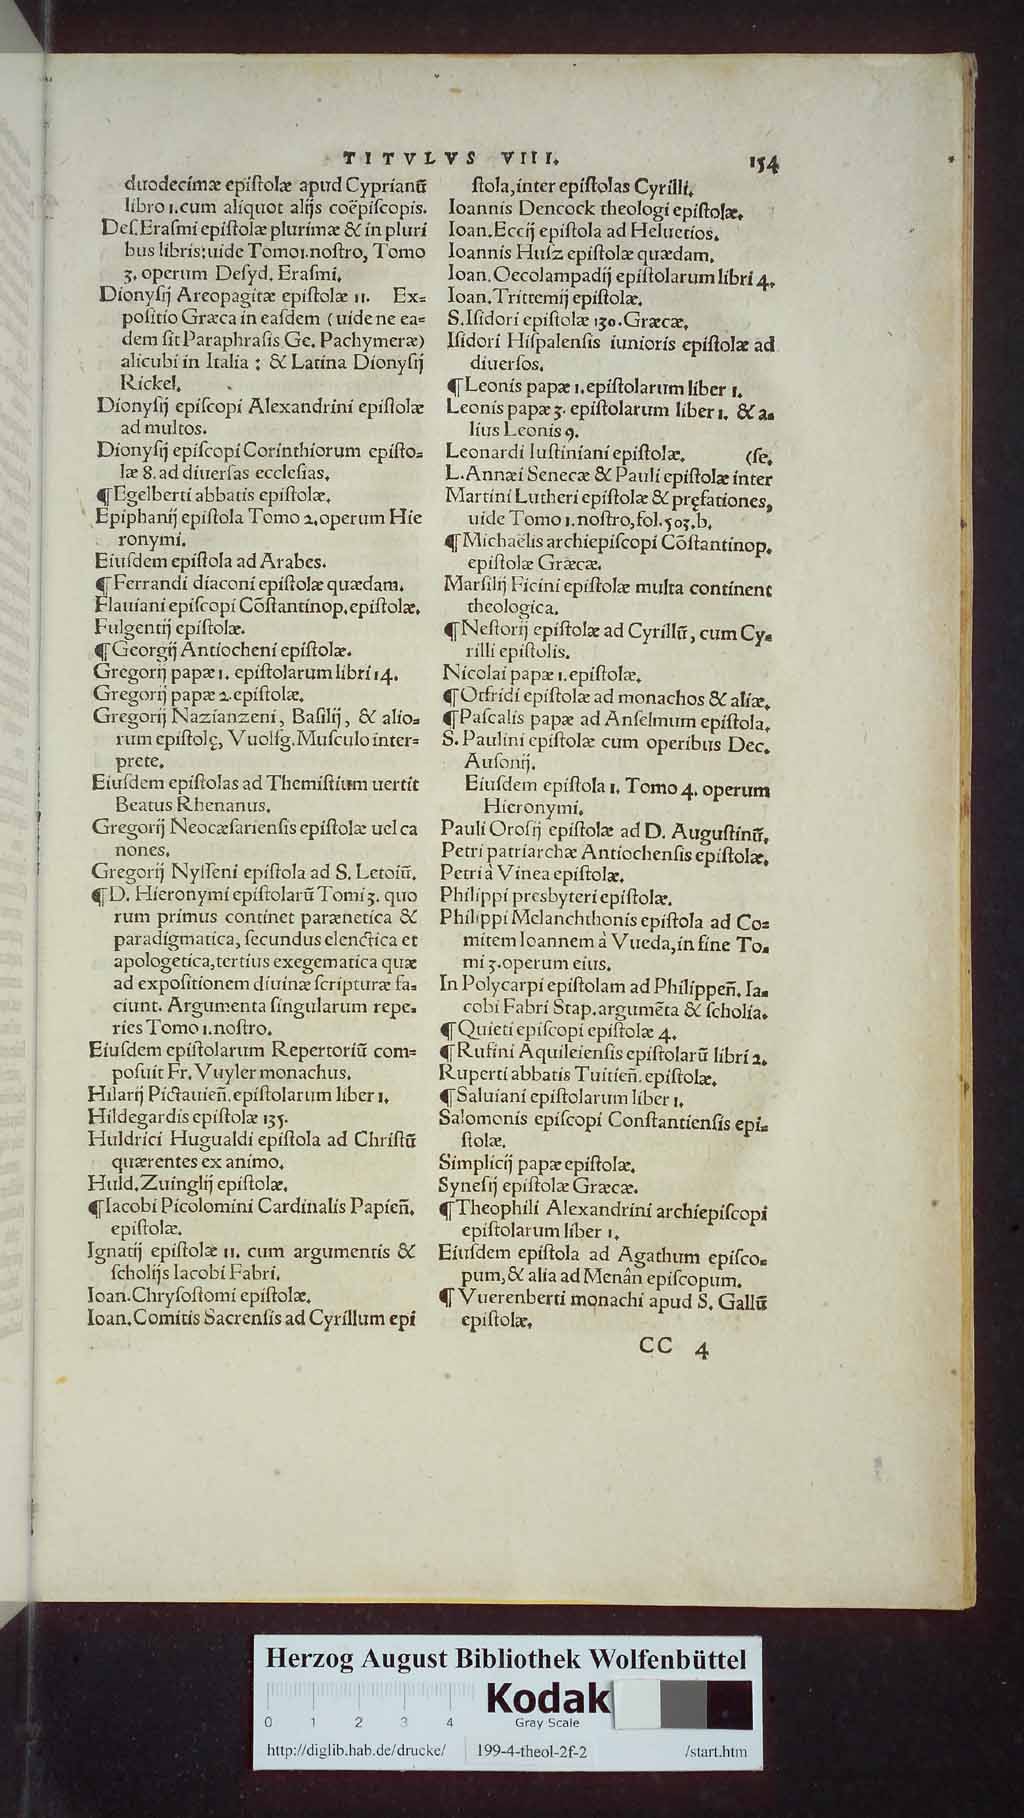 TITVLVS VIII. 154
duodecimæ epiſtolæ apud Cyprianū
libro 1.cum aliquot alijs coëpiſcopis.
Deſ.Eraſmi epiſtolæ plurimæ & in pluri
bus libris:uide Tomo1.noſtro, Tomo
3. operum Deſyd. Eraſmi.
Dionyſij Areopagitæ epiſtolæ 11. Ex=
poſitio Græca in eaſdem (uide ne ea=
dem ſit Paraphraſis Ge. Pachymeræ)
alicubi in Italia : & Latina Dionyſij
Rickel.
Dionyſij epiſcopi Alexandrini epiſtolæ
ad multos.
Dionyſij epiſcopi Corinthiorum epiſto=
læ 8. ad diuerſas eccleſias.
¶Egelberti abbatis epiſtolæ.
Epiphanij epiſtola Tomo 2.operum Hie
ronymi.
Eiuſdem epiſtola ad Arabes.
¶Ferrandi diaconi epiſtolæ quædam.
Flauiani epiſcopi Cōſtantinop.epiſtolæ.
Fulgentij epiſtolæ.
¶Georgij Antiocheni epiſtolæ.
Gregorij papæ 1. epiſtolarum libri 14.
Gregorij papæ 2.epiſtolæ.
Gregorij Nazianzeni, Baſilij, & alio=
rum epiſtolę, Vuolfg.Muſculo inter=
prete.
Eiuſdem epiſtolas ad Themiſtium uertit
Beatus Rhenanus.
Gregorij Neocæſarienſis epiſtolæ uel ca
nones.
Gregorij Nyſſeni epiſtola ad S. Letoiū.
¶D. Hieronymi epiſtolarū Tomi 3. quo
rum primus continet parænetica &
paradigmatica, ſecundus elenctica et
apologetica,tertius exegematica quæ
ad expoſitionem diuinæ ſcripturæ fa=
ciunt. Argumenta ſingularum repe=
ries Tomo 1.noſtro.
Eiuſdem epiſtolarum Repertoriū com=
poſuit Fr. Vuyler monachus.
Hilarij Pictauieñ.epiſtolarum liber 1.
Hildegardis epiſtolæ 135.
Huldrici Hugualdi epiſtola ad Chriſtū
quærentes ex animo.
Huld.Zuinglij epiſtolæ.
¶Iacobi Picolomini Cardinalis Papieñ.
epiſtolæ.
Ignatij epiſtolæ 11. cum argumentis &
ſcholijs Iacobi Fabri.
Ioan.Chryſoſtomi epiſtolæ.
Ioan.Comitis Sacrenſis ad Cyrillum epi
ſtola,inter epiſtolas Cyrilli.
Ioannis Dencock theologi epiſtolæ.
Ioan.Eccij epiſtola ad Heluetios.
Ioannis Huſz epiſtolæ quædam.
Ioan.Oecolampadij epiſtolarum libri 4.
Ioan.Trittemij epiſtolæ.
S.Iſidori epiſtolæ 130.Græcæ.
Iſidori Hiſpalenſis iunioris epiſtolæ ad
diuerſos.
¶Leonis papæ 1.epiſtolarum liber 1.
Leonis papæ 3. epiſtolarum liber 1. & a=
lius Leonis 9.
Leonardi Iuſtiniani epiſtolæ. (ſe.
L.Annæi Senecæ & Pauli epiſtolæ inter
Martini Lutheri epiſtolæ & pręfationes,
uide Tomo 1.noſtro,fol.503.b.
¶Michaëlis archiepiſcopi Cōſtantinop.
epiſtolæ Græcæ.
Marſilij Ficini epiſtolæ multa continent
theologica.
¶Neſtorij epiſtolæ ad Cyrillū, cum Cy=
rilli epiſtolis.
Nicolai papæ 1.epiſtolæ.
¶Otfridi epiſtolæ ad monachos & aliæ.
¶Paſcalis papæ ad Anſelmum epiſtola.
S. Paulini epiſtolæ cum operibus Dec.
Auſonij.
Eiuſdem epiſtola 1. Tomo 4. operum
Hieronymi.
Pauli Oroſij epiſtolæ ad D. Auguſtinū.
Petri patriarchæ Antiochenſis epiſtolæ.
Petri à Vinea epiſtolæ.
Philippi presbyteri epiſtolæ.
Philippi Melanchthonis epiſtola ad Co=
mitem Ioannem à Vueda,in fine To=
mi 3.operum eius.
In Polycarpi epiſtolam ad Philippeñ. Ia=
cobi Fabri Stap.argumēta & ſcholia.
¶Quieti epiſcopi epiſtolæ 4.
¶Rufini Aquileienſis epiſtolarū libri 2.
Ruperti abbatis Tuitieñ.epiſtolæ.
¶Saluiani epiſtolarum liber 1.
Salomonis epiſcopi Conſtantienſis epi=
ſtolæ.
Simplicij papæ epiſtolæ.
Syneſij epiſtolæ Græcæ.
¶Theophili Alexandrini archiepiſcopi
epiſtolarum liber 1.
Eiuſdem epiſtola ad Agathum epiſco=
pum,& alia ad Menân epiſcopum.
¶Vuerenberti monachi apud S. Gallū
epiſtolæ.
CC 4
Herzog August Bibliothek Wolfenbüttel
Kodak
0 1 2 3 4 Gray Scale
http://diglib.hab.de/drucke/ 199-4-theol-2f-2 /start.htm